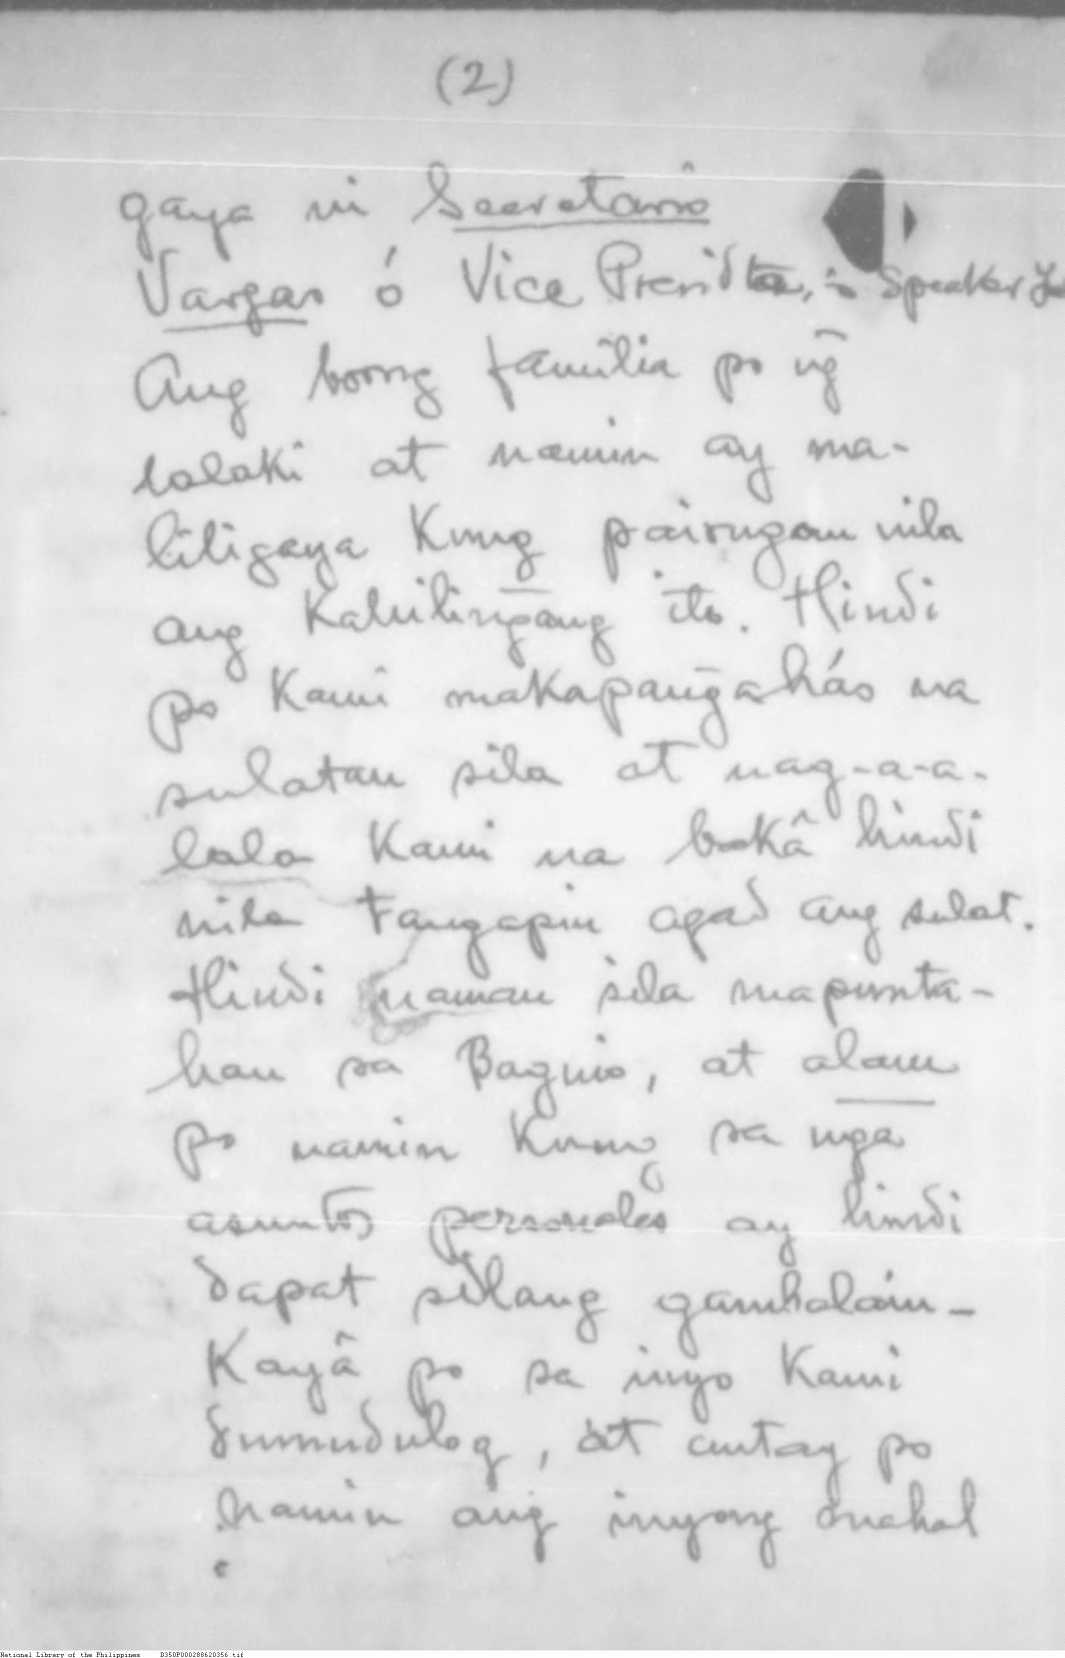 (2)
gaya ni Secretario
Vargas ó Vice Presidte, ó Speaker
Ang boong familia po ng̃
lalaki at namin ay ma-
liligaya Kung pairugan nila
ang Kahiling̃ang ito. Hindi
po Kami makapang̃ahás na
sulatan sila at nag-a-a-
lala Kami na bakâ hindi
nila tangapin agad ang sulat.
Hindi naman sila mapunta-
han sa Baguio, at alam
po namin Kung sa mga
asuntos personales ay hindi
dapat silang gambalain-
Kayâ po sa inyo Kami
dumudulog, at antay po
namin ang inyong mahal
National Library of the Philippines D350P000288620356.tif